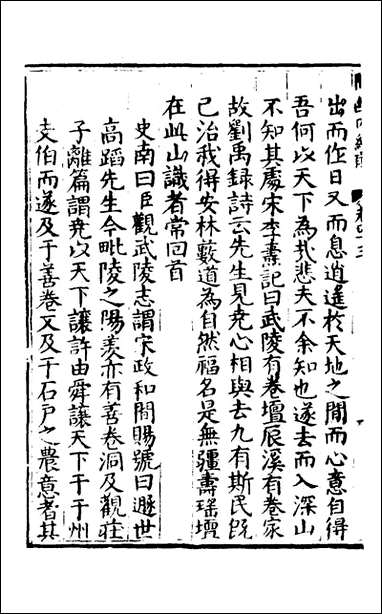 出而作日又而息逍遙於天地之間而心意自得
吾何以天下為㢤悲夫不余知也遂去而入深山
不知其處宋李燾記曰武陵有卷壇辰溪有卷冢
故劉禹録詩云先生見堯心相與去九有斯民既
已治我得安林藪道為自然福名是無疆壽瑤壇
在此山識者常回首
史南曰臣觀武陵志謂宋政和間賜號曰遯世
高蹈先生今毗陵之陽羨亦有善卷洞及觀莊
子離篇謂堯以天下讓許由舜讓天下于于州
支伯而遂及于善卷又及于石戸之農意者其